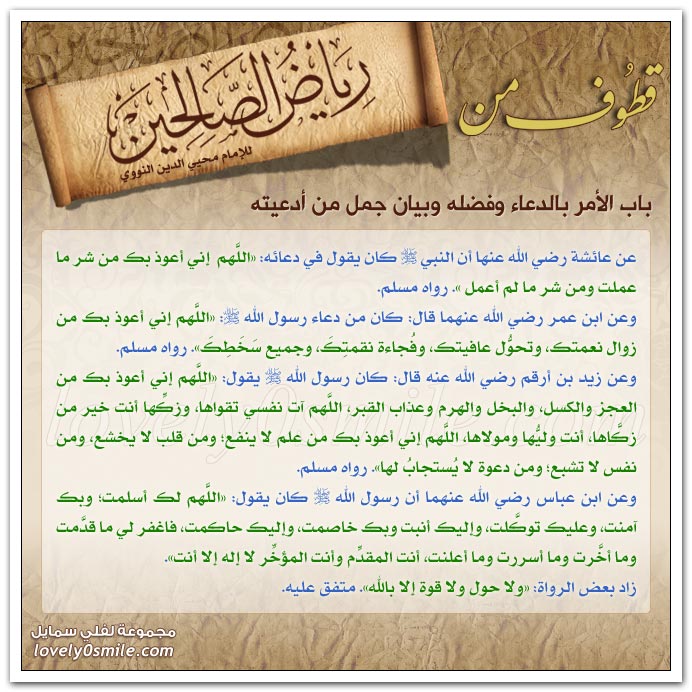 قطوف من
رياض الصالحين
للإمام محيي الدين النووي
باب الأمر بالدعاء وفضله وبيان جمل من أدعيته
عن عائشة رضي الله عنها أن النبي ﷺ كان يقول في دعائه: «اللَّهم إني أعوذ بك من شر ما
عملت ومن شر ما لم أعمل ». رواه مسلم.
وعن ابن عمر رضي الله عنهما قال: كان من دعاء رسول الله ﷺ: «اللَّهم إني أعوذ بك من
زوال نعمتك، وتحوُّل عافيتك، وفُجاءة نقمتِكَ، وجميع سَخَطِكَ». رواه مسلم.
وعن زيد بن أرقم رضي الله عنه قال: كان رسول الله ﷺ يقول: «اللَّهم إني أعوذ بك من
العجز والكسل، والبخل والهرم وعذاب القبر، اللَّهم آت نفسي تقواها، وزكِّها أنت خير من
زكَّاها، أنت وليُّها ومولاها، اللَّهم إني أعوذ بك من علم لا ينفع؛ ومن قلب لا يخشع، ومن
نفس لا تشبع؛ ومن دعوة لا يُستجابُ لها». رواه مسلم.
وعن ابن عباس رضي الله عنهما أن رسول الله ﷺ كان يقول: «اللَّهم لك أسلمت؛ وبك
آمنت، وعليك توكَّلت، وإليك أنبت وبك خاصمت، وإليك حاكمت، فاغفر لي ما قدَّمت
وما أخَّرت وما أسررت وما أعلنت، أنت المقدِّم وأنت المؤخِّر لا إله إلا أنت».
زاد بعض الرواة: «ولا حول ولا قوة إلا بالله». متفق عليه.
lovely0smile.com
مجموعة لفلي سمايل
lovely0smile.com